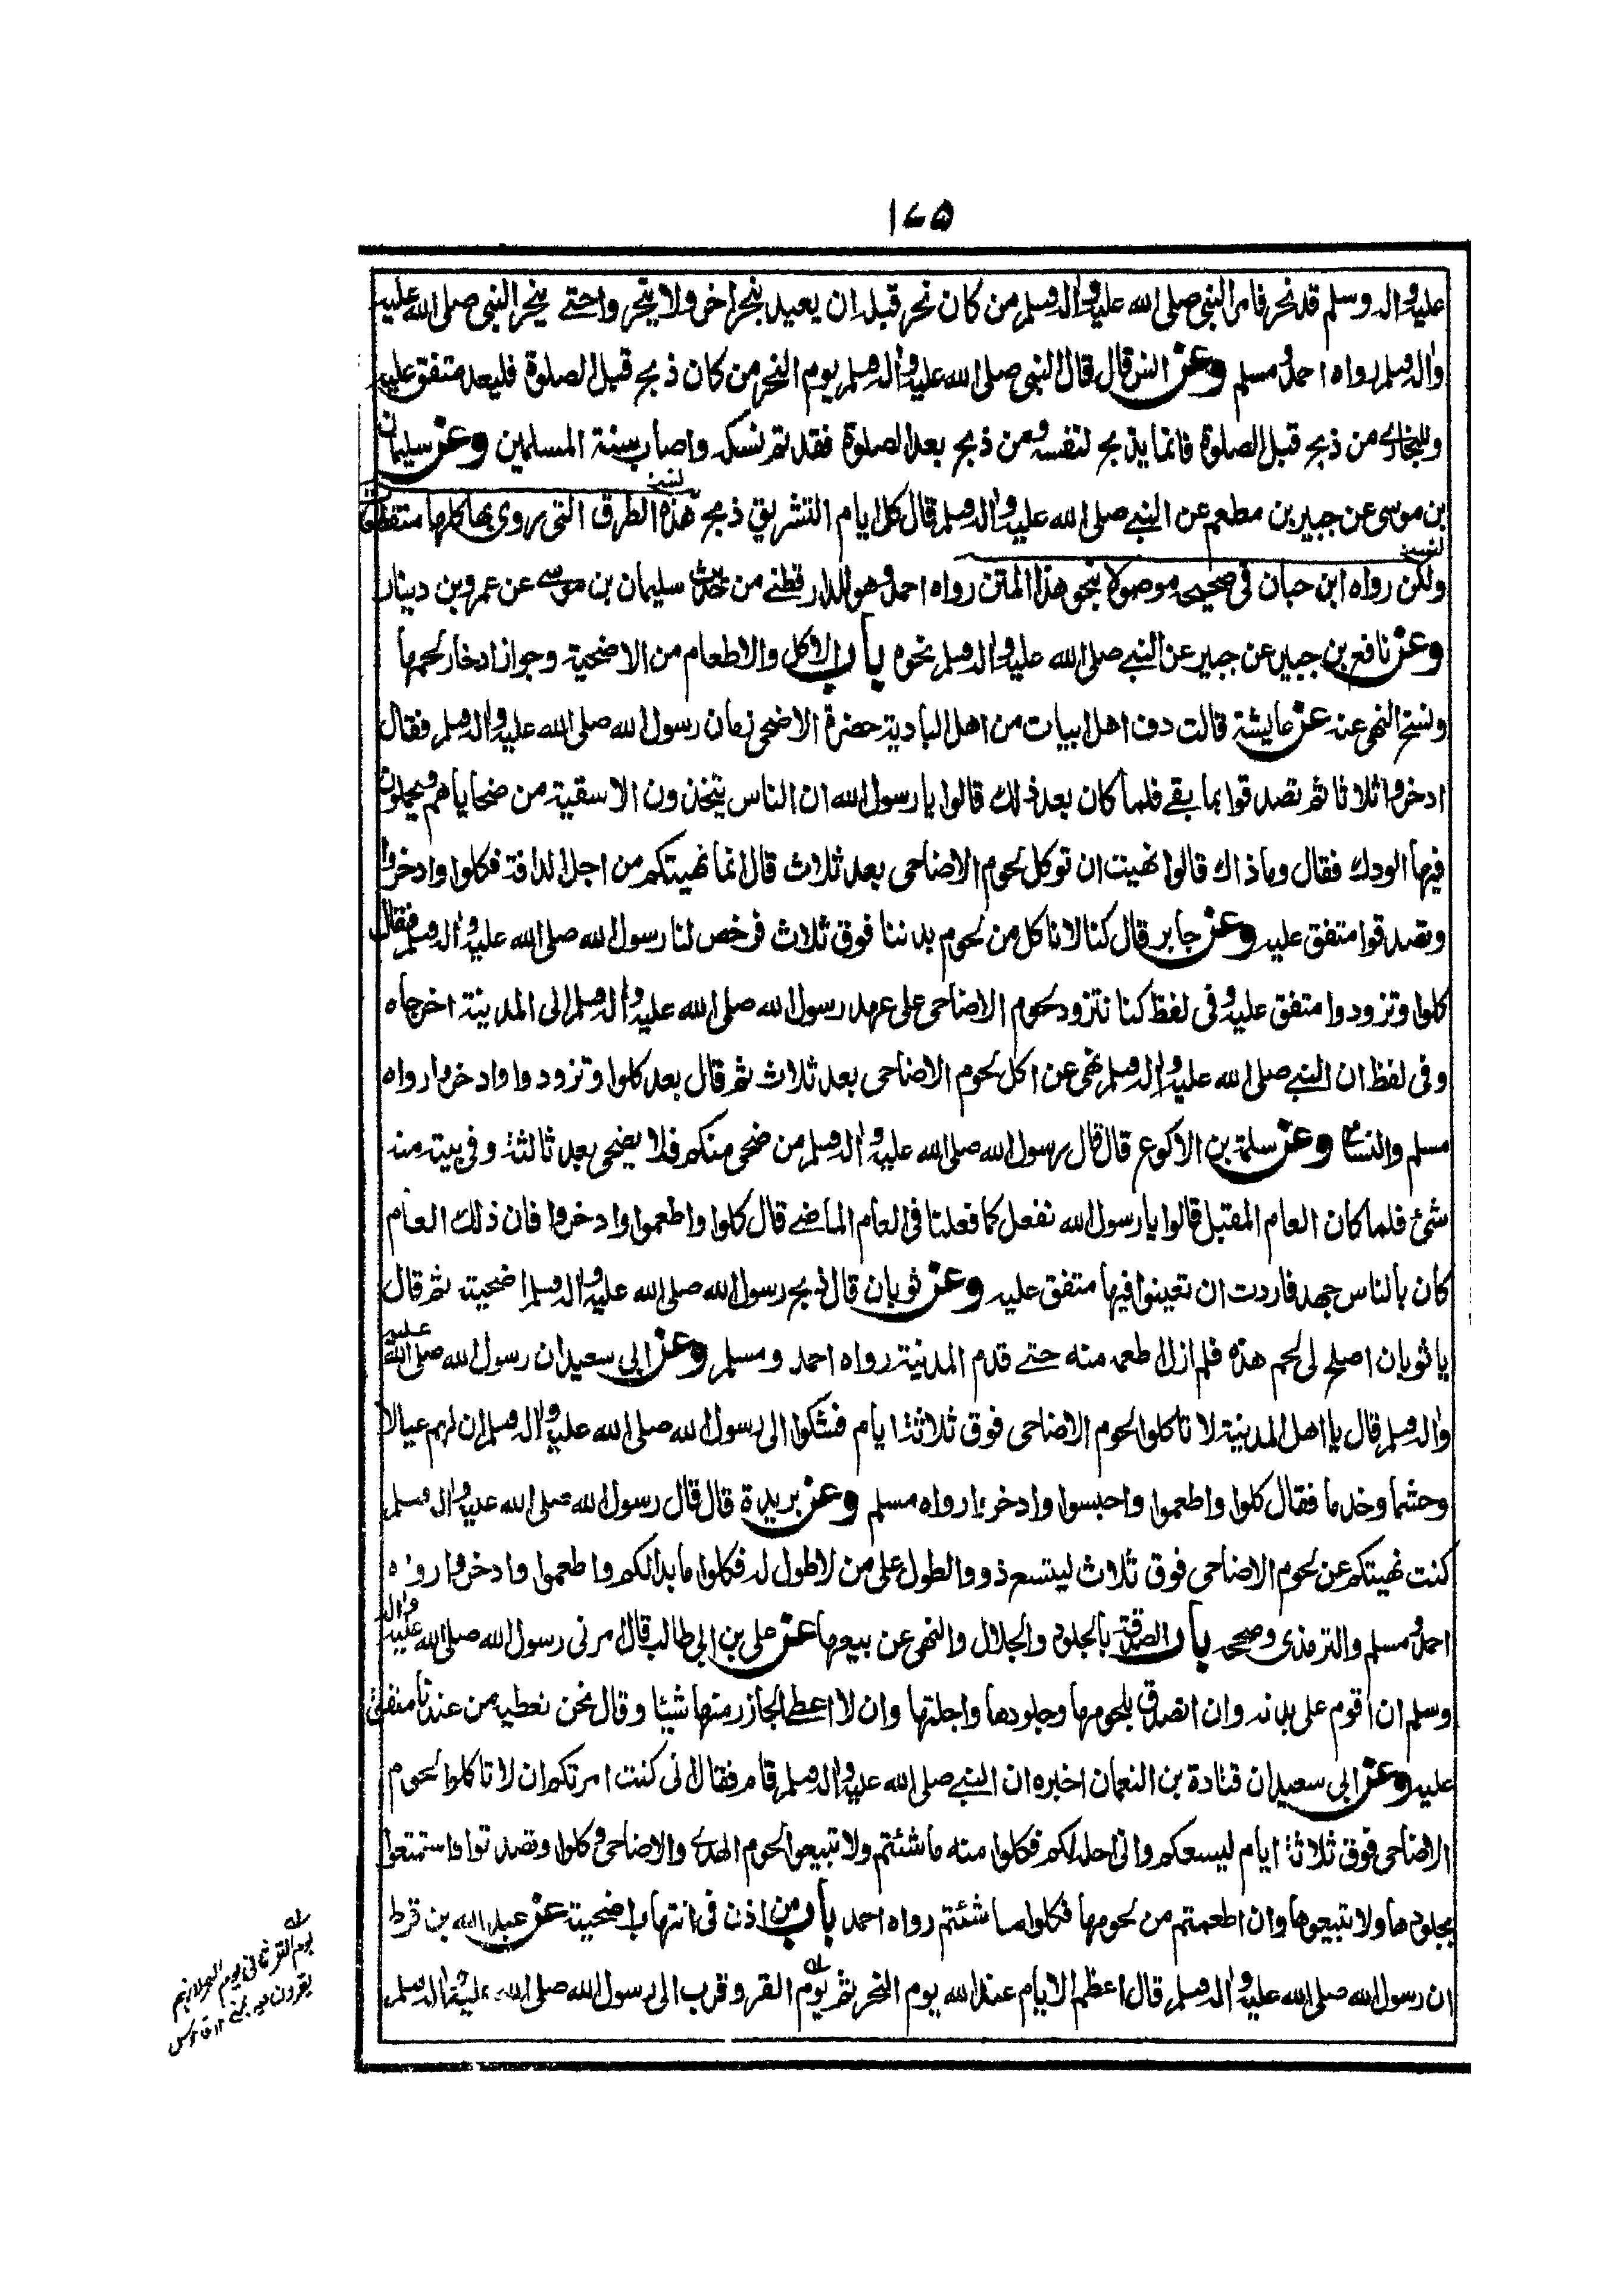 ١٧٥
عليه واله وسلم قد نحر فامر النبي صلى الله عليه واله وسلم من كان نحر قبله ان يعيد بنحر اخر ولا ينحروا حتے ينحر النبي صلى الله عليه
واله وسلم رواه احمد ومسلم وعن انس قال قال النبي صلى الله عليه واله وسلم يوم النحر من كان ذبح قبل الصلوة فليعد متفق عليه
وللبخاري من ذبح قبل الصلوة فانما يذبح لنفسه ومن ذبح بعد الصلوة فقد تم نسكه واصاب سنة المسلمين وعن سليمان
بن موسى عن جبير بن مطعم عن النبے صلى الله عليه واله وسلم قال كل ايام التشريق ذبح هذه الطرق التى روى بها كلها منقطعة
ولكن رواه ابن حبان فى صحيحه موصولا بنحو هذا المتن رواه احمد وهو للدارقطنے من حديث سليمان بن موسے عن عمرو بن دينار
وعن نافع بن جبير عن جبير عن النبے صلى الله عليه واله وسلم نحوه باب الاكل والاطعام من الاضحية وجواز ادخار لحمها
ونسخ النهى عنه عن عايشة قالت دف اهل ابيات من اهل البادية حضرة الاضحى زمان رسول الله صلى الله عليه واله وسلم فقال
ادخروا ثلاثا ثم تصدقوا بما بقے فلما كان بعد ذلك قالوا يا رسول الله ان الناس يتخذون الاسقية من ضحاياهم ويجملون
فيها الودك فقال وما ذاك قالوا نهيت ان توكل لحوم الاضاحى بعد ثلاث قال انما نهيتكم من اجل الدافة فكلوا وادخروا
وتصدقوا متفق عليه وعن جابر قال كنا لا ناكل من لحوم بدننا فوق ثلاث فرخص لنا رسول الله صلى الله عليه واله وسلم فقال
كلوا وتزودوا متفق عليه وفى لفظ كنا نتزود لحوم الاضاحى على عهد رسول الله صلى الله عليه واله وسلم الى المدينة اخرجاه
وفى لفظ ان النبے صلى الله عليه واله وسلم نهى عن اكل لحوم الاضاحى بعد ثلاث ثم قال بعد كلوا وتزودوا وادخروا رواه
مسلم والنسائ وعن سلمة بن الاكوع قال قال رسول الله صلى الله عليه واله وسلم من ضحى منكم فلا يضحى بعد ثالثة وفى بيته منه
شئ فلما كان العام المقبل قالوا يا رسول الله نفعل كما فعلنا فى العام الماضے قال كلوا واطعموا وادخروا فان ذلك العام
كان بالناس جهد فاردت ان تعينوا فيها متفق عليه وعن ثوبان قال ذبح رسول الله صلى الله عليه واله وسلم اضحيته ثم قال
يا ثوبان اصلح لى لحم هذه فلم ازل اطعمه منه حتے قدم المدينة رواه احمد ومسلم وعن ابى سعيد ان رسول الله صلى الله عليه
واله وسلم قال يا اهل المدينة لا تاكلوا لحوم الاضاحى فوق ثلاثة ايام فشكوا الى رسول الله صلى الله عليه واله وسلم ان لهم عيالا
وحشما وخدما فقال كلوا واطعموا واحبسوا وادخروا رواه مسلم وعن بريدة قال قال رسول الله صلى الله عليه واله وسلم
كنت نهيتكم عن لحوم الاضاحى فوق ثلاث ليتسع ذوو الطول على من لا طول له فكلوا ما بدا لكم واطعموا وادخروا رواه
احمد ومسلم والترمذى وصححه باب الصدقة بالجلود والجلال والنهى عن بيعها عن على بن ابى طالب قال امرنى رسول الله صلى الله عليه واله
وسلم ان اقوم على بدنه وان اتصدق بلحومها وجلودها واجلتها وان لا اعطى الجازر منها شيئا وقال نحن نعطيه من عندنا متفق
عليه وعن ابى سعيد ان قتادة بن النعمان اخبره ان النبے صلى الله عليه واله وسلم قام فقال انى كنت امرتكم ان لا تاكلوا لحوم
الاضاحى فوق ثلاثة ايام ليسعكم وانى احله لكم فكلوا منه ما شئتم ولا تبيعوا لحوم الهدے والاضاحى وكلوا وتصدقوا واستمتعوا
بجلودها ولا تبيعوها وان اطعمتم من لحومها فكلوا ما شئتم رواه احمد باب من اذن فى انتهاب اضحيته عن عبد الله بن قرط
ان رسول الله صلى الله عليه واله وسلم قال اعظم الايام عند الله يوم النحر ثم يوم القر وقرب الى رسول الله صلى الله عليه واله وسلم
يوم القر ثانى يوم النحر لانهم
يقرون فيه بمنے ١٢ قاموس